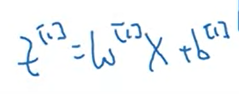 z^{[1]} = W^{[1]} X + b^{[1]}